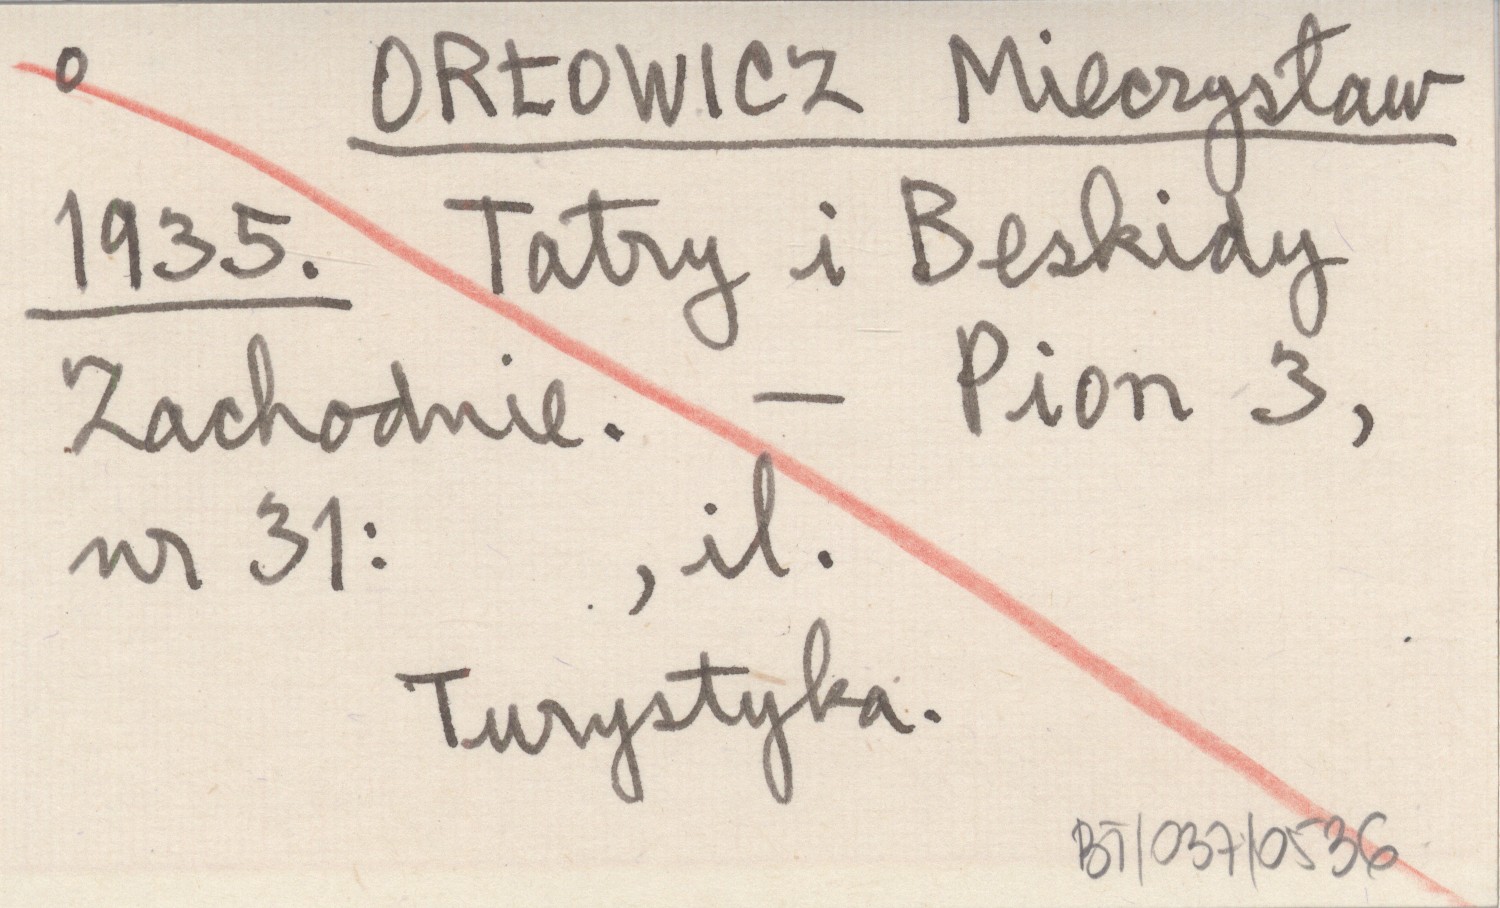 o ORŁOWICZ Mieczysław
1935. Tatry i Beskidy
Zachodnie. — Pion 3,
nr 31: , il.
Turystyka.
BT/037/0536